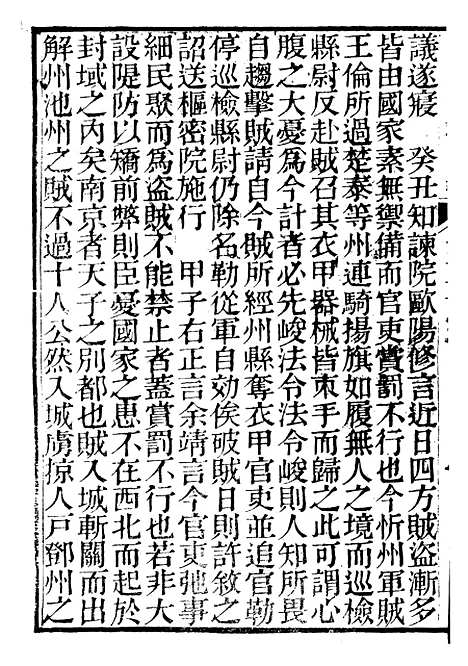 議遂寢　癸丑知諫院歐陽修言近日四方賊盜漸多
皆由國家素無禦備而官吏賞罰不行也今忻州軍賊
王倫所過楚泰等州連騎揚旗如履無人之境而巡檢
縣尉反赴賊召其衣甲器械皆束手而歸之此可謂心
腹之大憂為今計者必先峻法令法令峻則人知所畏
自趨擊賊請自今賊所經州縣奪衣甲官吏並追官勒
停巡檢縣尉仍除名勒從軍自効俟破賊日則許敘之
詔送樞密院施行　甲子右正言余靖言今官吏弛事
細民聚而為盜賊不能禁止者蓋賞罰不行也若非大
設隄防以矯前弊則臣憂國家之患不在西北而起於
封域之內矣南京者天子之別都也賊入城斬關而出
解州池州之賊不過十人公然入城虜掠人戸鄧州之